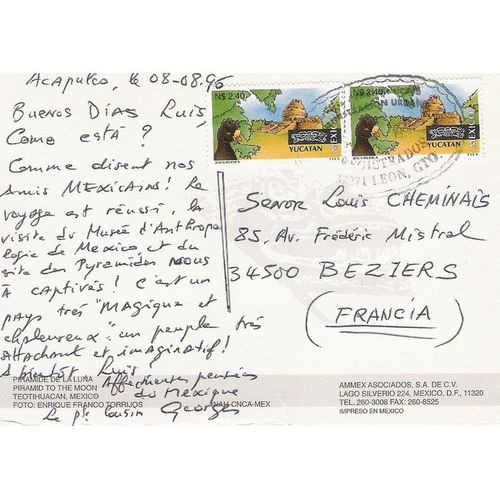 Acapulco, le 08-08.96
Buenos Días Luis
Como está?
Comme disent nos
amis MEXICAINS! Le
voyage est réussi, la
visite du Musée d'Anthropo
logie de Mexico, et du
site des Pyramides nous
à captivés! C'est un
pays très "Magique et
chaleureux": un peuple très
attachant et imaginatif!
A bientôt Luis
Affectueuses pensées
du Mexique
Le pt cousin Georges
N$ 2.40
YUCATAN
MEXICO
N$ 2.40
YUCATAN
MEXICO
REGISTRADOS
37271 LEON, GTO.
Senor Louis CHEMINAIS
85, Av. Frédéric Mistral
34500 BEZIERS
(FRANCIA)
PIRAMIDE DE LA LUNA
PIRAMID TO THE MOON
TEOTIHUACAN, MEXICO
FOTO: ENRIQUE FRANCO TORRIJOS
INAH CNCA-MEX
AMMEX ASOCIADOS, S.A. DE C.V.
LAGO SILVERIO 224, MEXICO, D.F., 11320
TEL. 260-3008 FAX: 260-8525
IMPRESO EN MEXICO